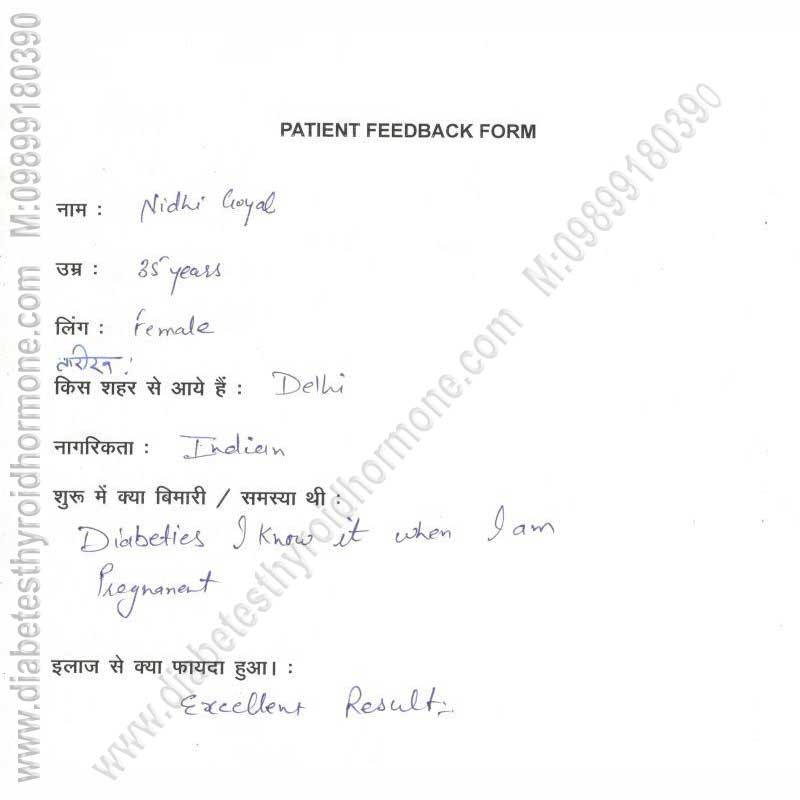 PATIENT FEEDBACK FORM
नाम : Nidhi Goyal
उम्र : 35 years
लिंग : Female
तारीख :
किस शहर से आये हैं : Delhi
नागरिकता : Indian
शुरू में क्या बिमारी / समस्या थी :
Diabeties I know it when I am
Pregnanent
इलाज से क्या फायदा हुआ। :
Excellent Result
www.diabetesthyroidhormone.com M:09899180390
www.diabetesthyroidhormone.com M:09899180390